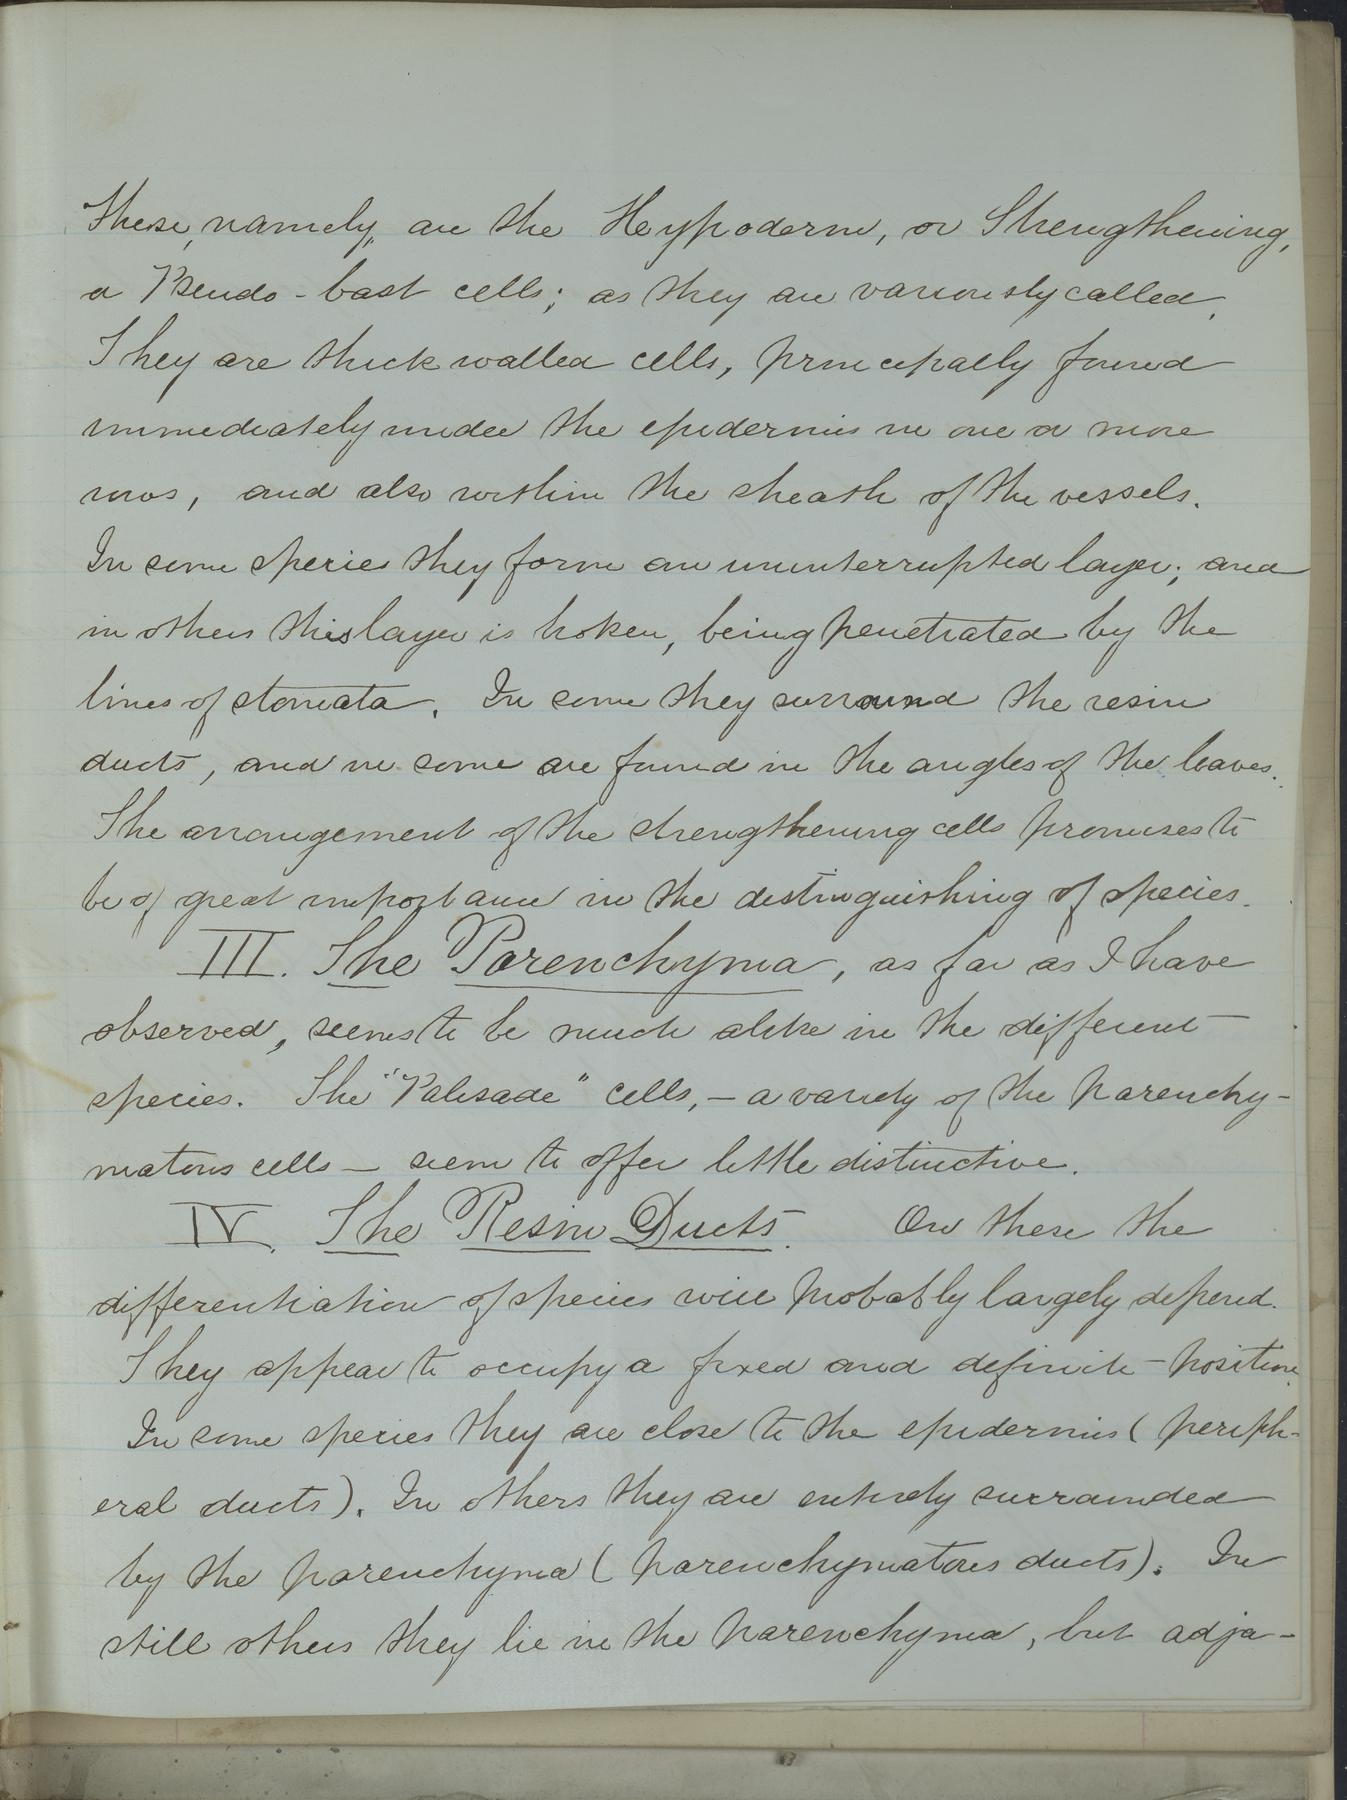 These, namely, are the Heypoderm, or Strengthening,
or Pseudo-bast cells; as they are variously called.
They are thick walled cells, principally found
immediately under the epidermis in one or more
rows, and also within the sheath of the vessels.
In some species they form an uninterrupted layer; and
in others this layer is broken, being penetrated by the
lines of stomata. In some they surround the resin
ducts, and in some are found in the angles of the leaves.
The arrangement of the strengthening cells promises to
be of great importance in the distinguishing of species.
III. The Parenchyma, as far as I have
observed, seems to be much alike in the different
species. The "Palisade" cells, — a variety of the parenchy-
matous cells — seem to offer little distinctive.
IV. The Resin Ducts. On these the
differentiation of species will probably largely depend.
They appear to occupy a fixed and definite position.
In some species they are close to the epidermis (periph-
eral ducts). In others they are entirely surrounded
by the parenchyma (parenchymatous ducts). In
still others they lie in the parenchyma, but adja-